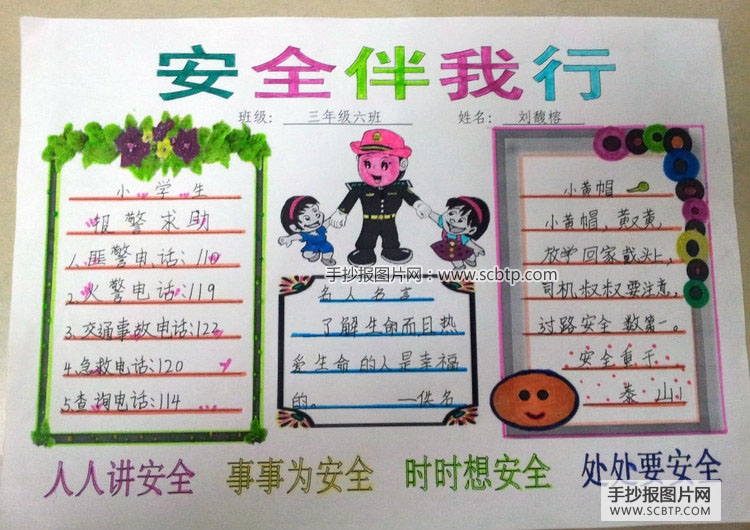 安全伴我行
班级： 三年级六班 姓名： 刘馥榕
小学生
报警求助
1.匪警电话:110
2.火警电话:119
3.交通事故电话:122
4.急救电话:120
5.查询电话:114
手抄报图片网：www.scbtp.com
名人名言
了解生命而且热
爱生命的人是幸福
的。 —佚名
小黄帽
小黄帽,黄又黄,
放学回家戴头上,
司机叔叔要注意,
过路安全数第一。
安全重于
泰山!
人人讲安全 事事为安全 时时想安全 处处要安全
手抄报图片网
WWW.SCBTP.COM